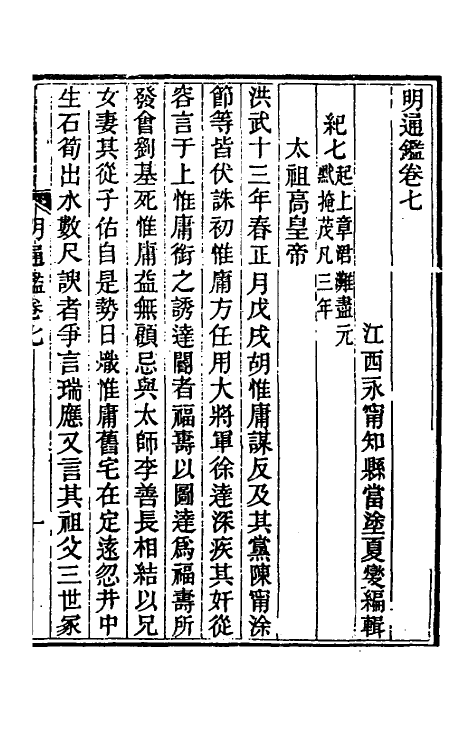 明通鑑卷七
江西永甯知縣當塗夏燮編輯
紀七起上章涒灘盡元
黓掩茂凡三年
太祖高皇帝
洪武十三年春正月戊戌胡惟庸謀反及其黨陳甯涂
節等皆伏誅初惟庸方任用大將軍徐達深疾其奸從
容言于上惟庸銜之誘達閽者福壽以圖達爲福壽所
發會劉基死惟庸益無顧忌與太師李善長相結以兄
女妻其從子佑自是勢日熾惟庸舊宅在定遠忽井中
生石筍出水數尺諛者爭言瑞應又言其祖父三世冢
明通鑑卷七
一